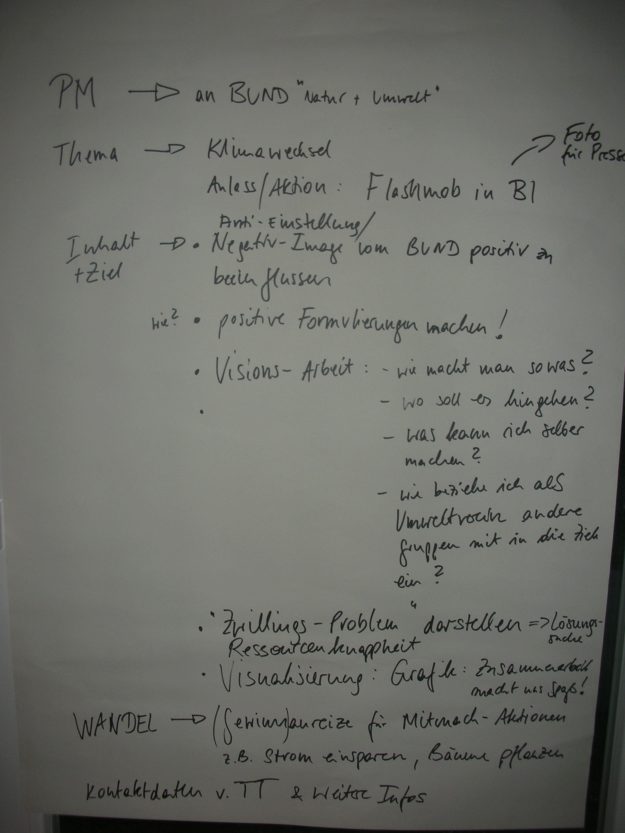 PM → an BUND "Natur + Umwelt"
Foto
für Presse
Thema → Klimawechsel
Anlass/Aktion: Flashmob in BI
Anti-Einstellung/
Inhalt → • Negativ-Image vom BUND positiv zu
+Ziel beeinflussen
wie? • positive Formulierungen machen!
• Visions-Arbeit: - wie macht man sowas?
- wo soll es hingehen?
- was kann ich selber
machen?
- wie beziehe ich als
Umweltverein andere
Gruppen mit in die Ziele
ein?
• "Zwillings-Problem" darstellen => Lösungs-
suche
Ressourcenknappheit
• Visualisierung: Grafik: Zusammenarbeit
macht uns Spaß!
WANDEL → (Gewinn)anreize für Mitmach-Aktionen
z.B. Strom einsparen, Bäume pflanzen
Kontaktdaten v. TT & weitere Infos